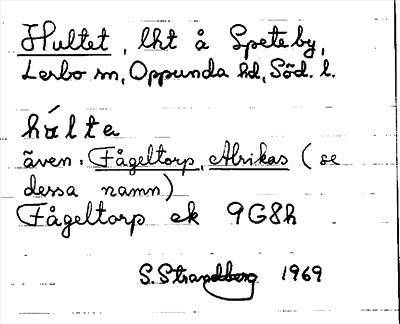 Hultet, lht å Speteby,
Lerbo sn, Oppunda hd, Söd. l.
húlta
även: Fågeltorp, Alrikas (se
dessa namn)
Fågeltorp ek 9G8h
S. Strandberg 1969